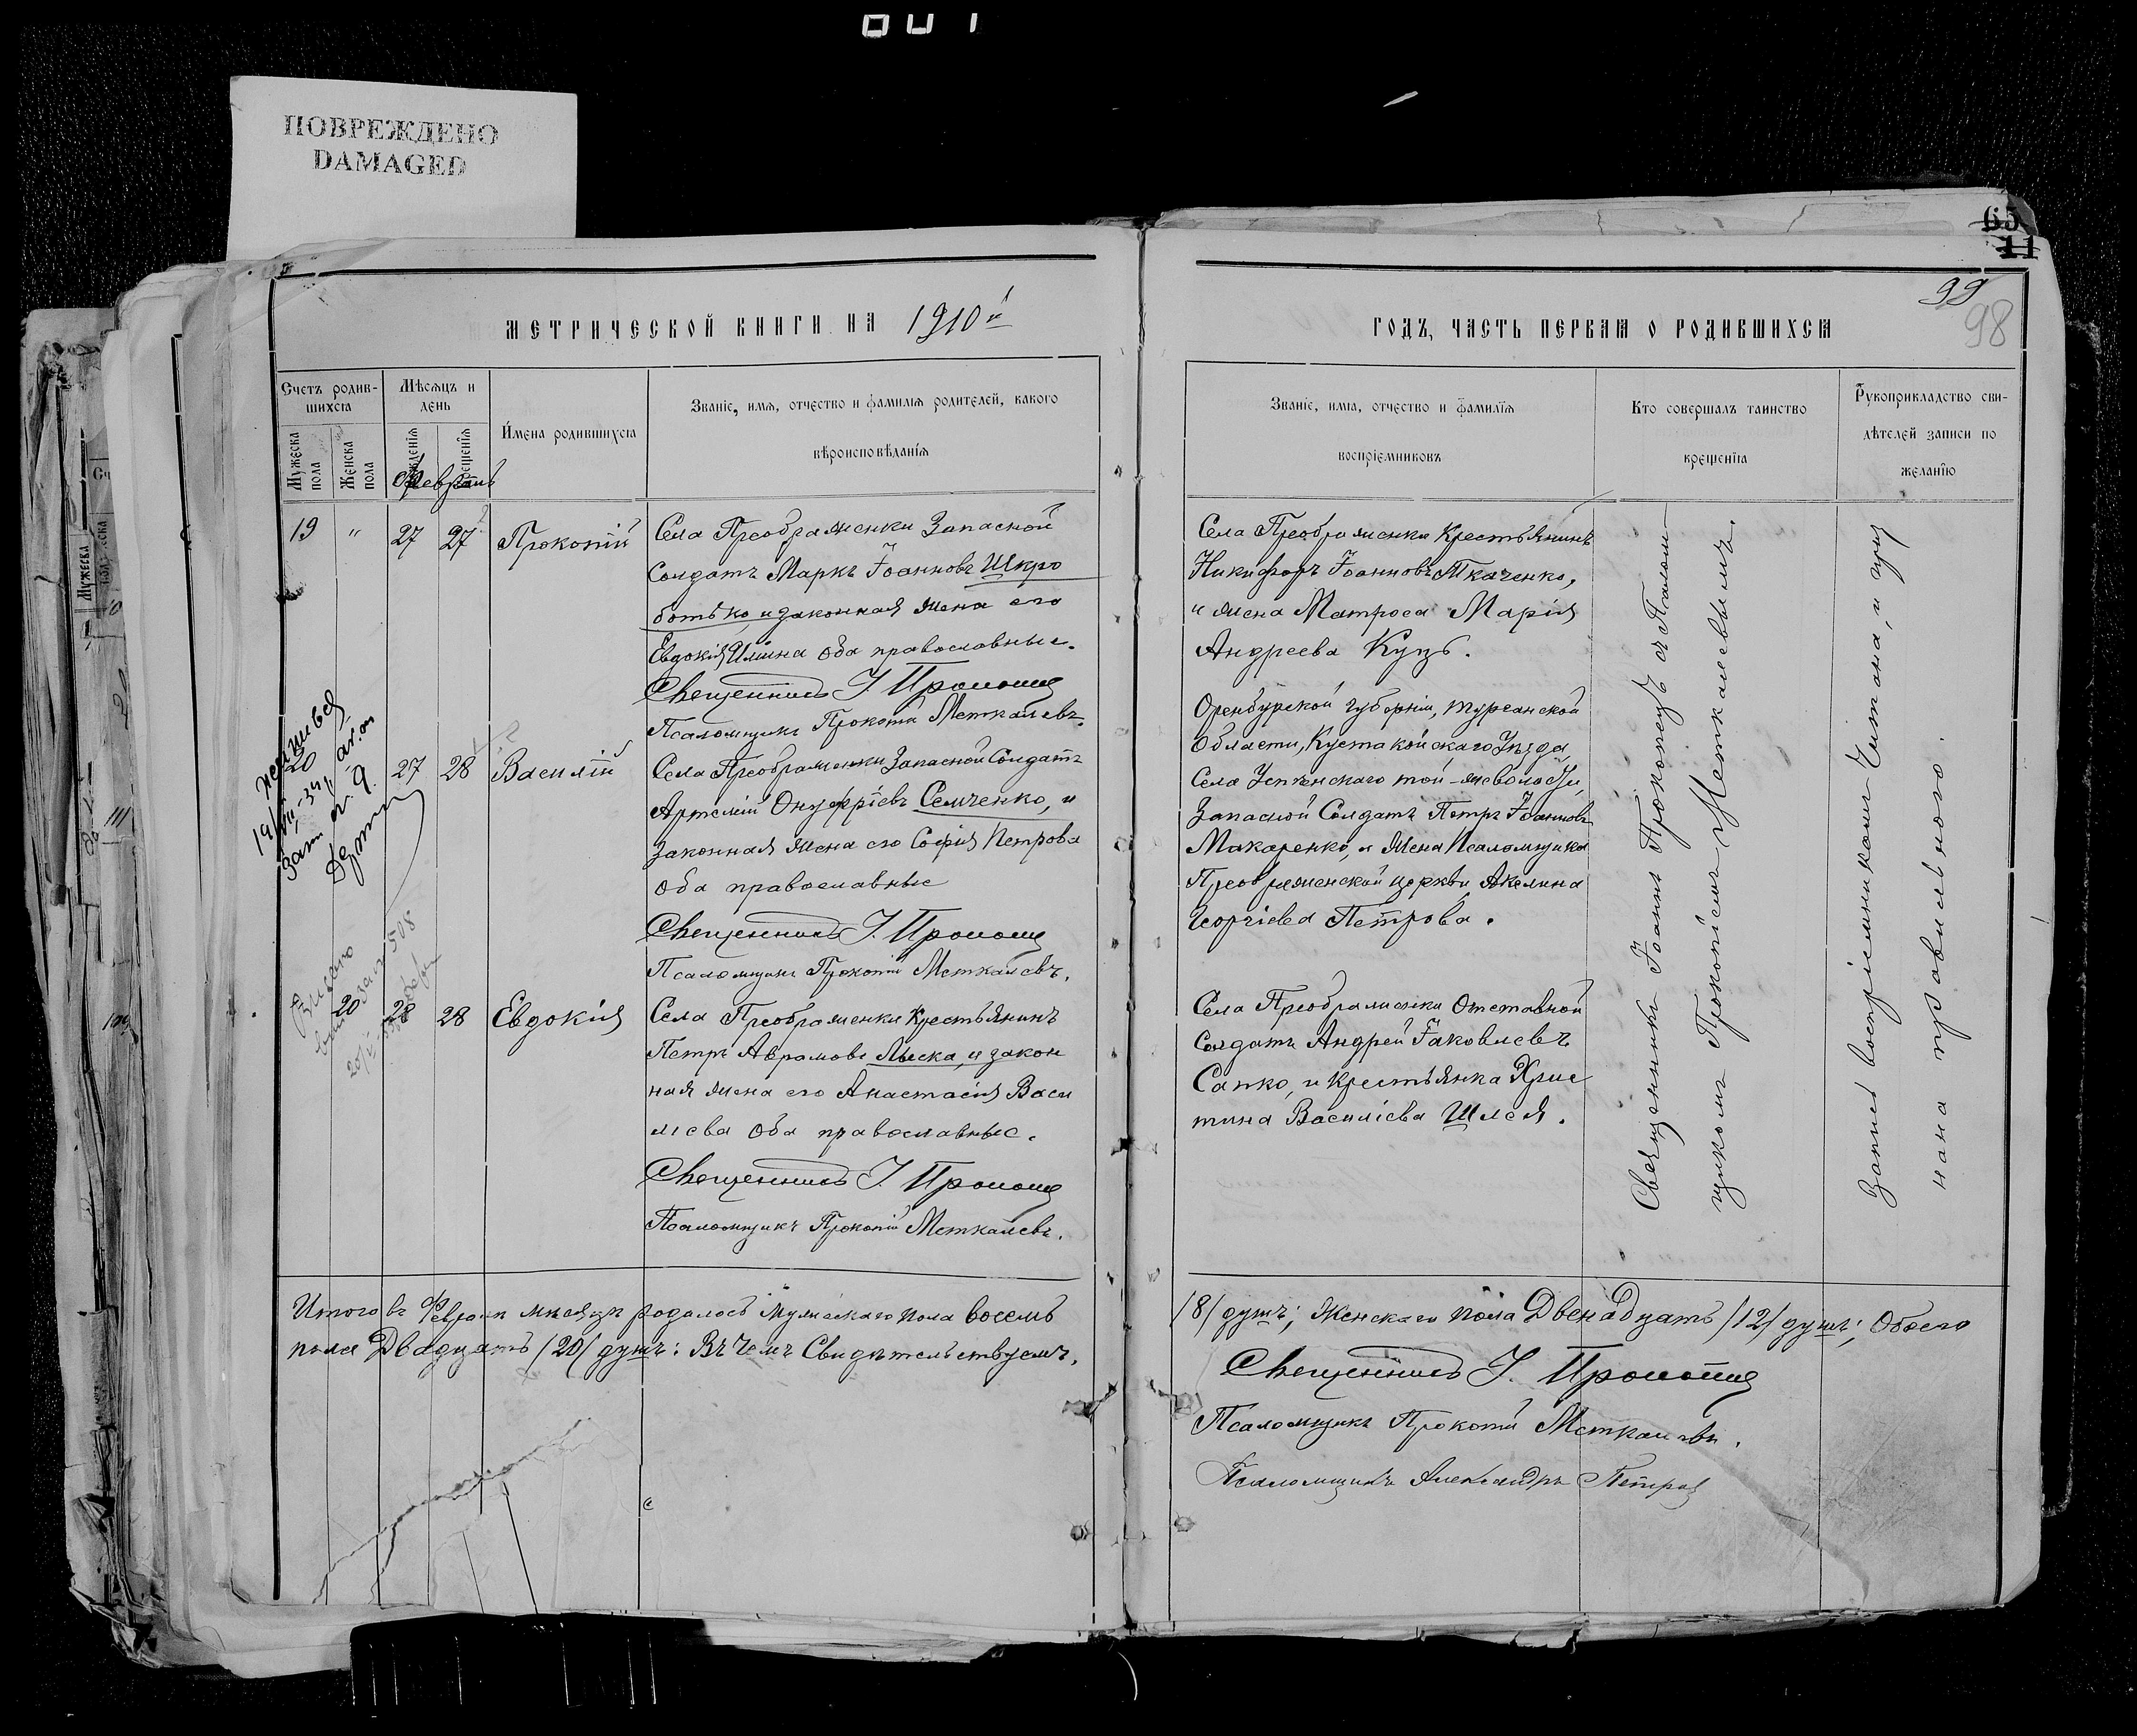 ПОВРЕЖДЕНО
DAMAGED
65
11
99
98
МЕТРИЧЕСКОЙ КНИГИ НА 1910й
Счетъ родив-
шихся
Мужеска пола
Женска пола
Мѣсяцъ и
день
рожденія
крещенія
Февраль
Имена родившихся
Званіе, имя, отчество и фамилія родителей, какого
вѣроисповѣданія
19 " 27 27 Прокопій
Села Преображенки Запасной
Солдатъ Маркъ Іоанновъ Шкро
ботько, и законная жена его
Евдокія оба православные.
Священникъ І.
Псаломщикъ Прокопій Меткалевъ.
20 27 28 Василій
Села Преображенки Запасной Солдатъ
Артемій Онуфріевъ Семченко, и
законная жена его Софія Петрова
оба православные
Священникъ І.
Псаломщикъ Прокопій Меткалевъ.
20 28 28 Евдокія
Села Преображенки Крестьянинъ
Петръ Аврамовъ Лыска, и закон
ная жена его Анастасія Васи
лiева оба православные.
Священникъ І.
Псаломщикъ Прокопій Меткалевъ.
Итого въ Февралѣ мѣсяцѣ родилось мужескаго пола восемь
пола Двадцать /20/ душъ: Въ чемъ Свидѣтельствуемъ.
ГОДЪ, ЧАСТЬ ПЕРВАЯ О РОДИВШИХСЯ
Званіе, имя, отчество и фамилія
воспріемниковъ
Кто совершалъ таинство
крещенія
Рукоприкладство сви-
дѣтелей записи по
желанію
Села Преображенки Крестьянинъ
Никифоръ Іоанновъ Ткаченко,
и жена Матроса Марія
Андреева Куцъ.
Оренбурской губерніи, Тургайской
Области, Уѣзда
Села Успенскаго той-же волости,
Запасной Солдатъ Петръ Іоанновъ
Макаренко, и жена Псаломщика
Преображенской церкви Акелина
Георгіева Петрова.
Села Преображенки Отставной
Солдатъ Андрей Іаковлевъ
Сапко, и крестьянка Хрис
тина Василіева Шлея.
Священникъ Іоаннъ съ Псалом
щикомъ Прокопіемъ Меткалевымъ.
Запись воспріемниками Читана, и приз
нана правильною.
/8/ душъ; Женскаго пола Двенадцать /12/ душъ; Обоего
Священникъ І.
Псаломщикъ Прокопій Меткалевъ.
Псаломщикъ Александръ Петровъ